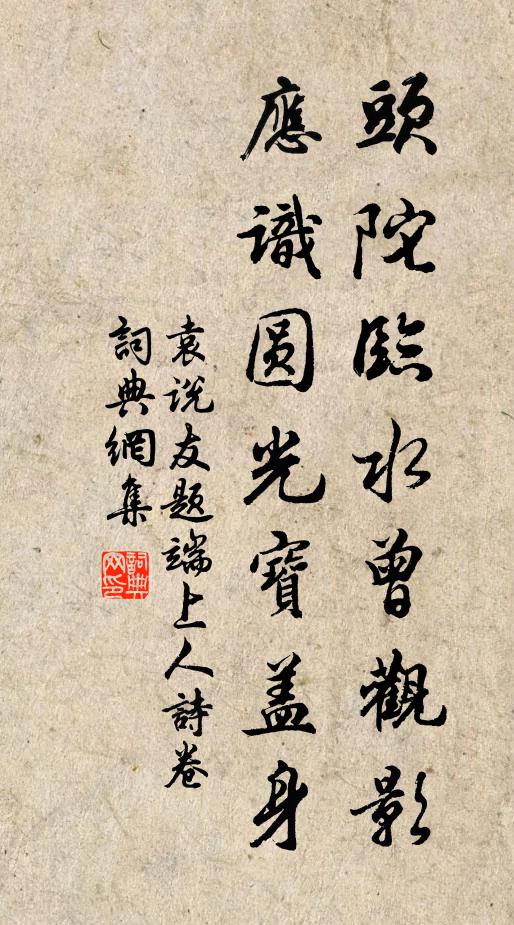 頭陀臨水曾觀影
應識圓光寶盖身
袁説友題端上人詩卷
詞典網集
詞典网印